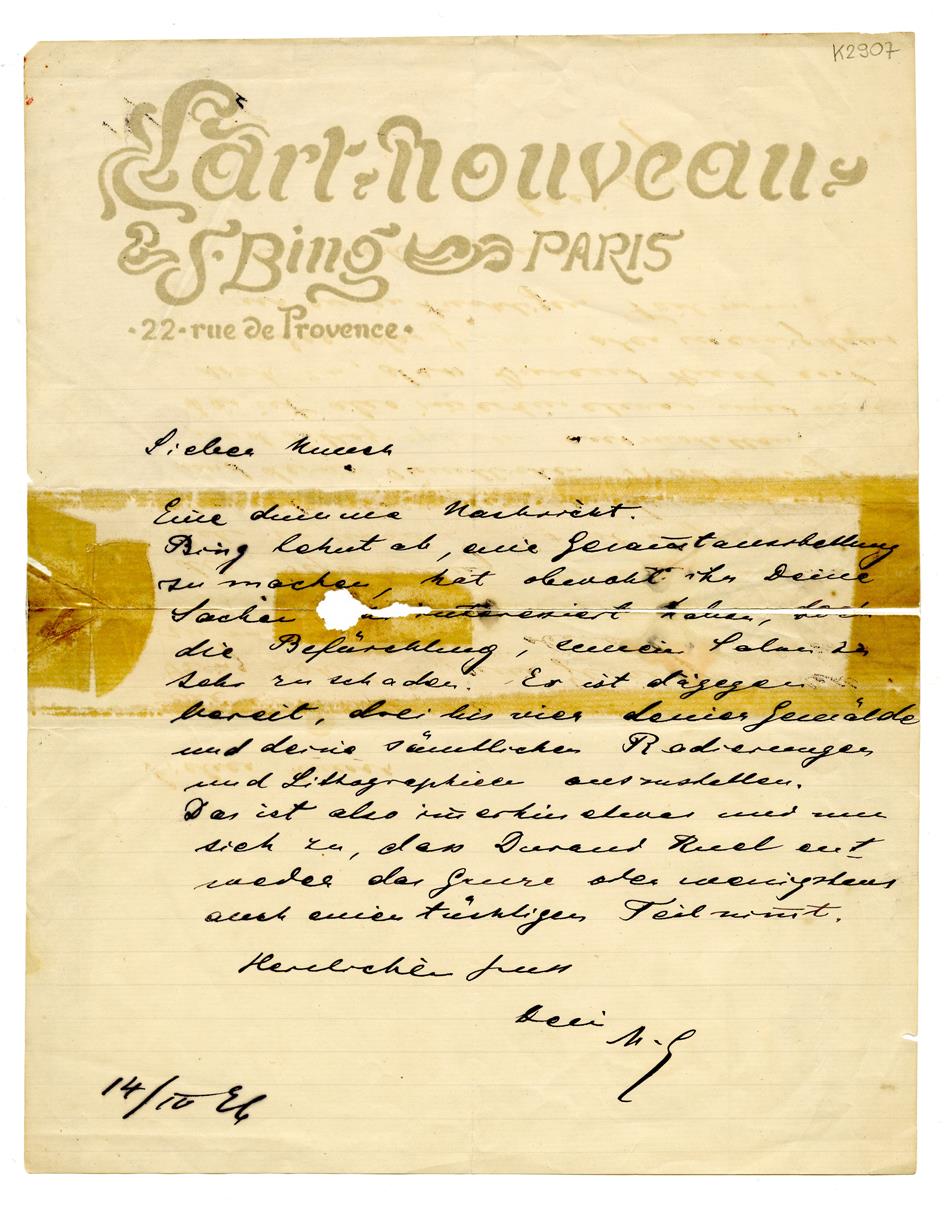 K2907
L'art nouveau
S. Bing PARIS
22 rue de Provence
Lieber Munch
Eine dumme Nachricht.
Bing lehnt ab, eine Gesam̄tausstellung
zu machen, hat obwohl ihn Deine
Sachen interessiert haben, 
die Befürchtung, seinen Salon zu
sehr zu schaden. Er ist dagegen
bereit, drei bis vier deiner Gemälde
und deine sämtlichen Radierungen
und Lithographien auszustellen.
Das ist also im̄erhin etwas und nun
sich zu, dass Durand Ruel ent
weder das Ganze oder wenigstens
auch einen tüchtigen Teil nim̄t.
Herzlichen Gruss
Dein
M-G
14/IV 96